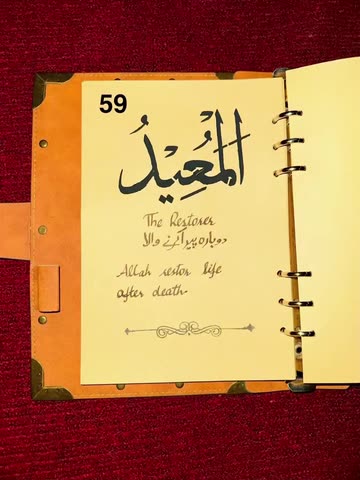 59
اَلْمُعِيْدُ
The Restorer
دوبارہ پیدا کرنے والا
Allah restor life
after death.